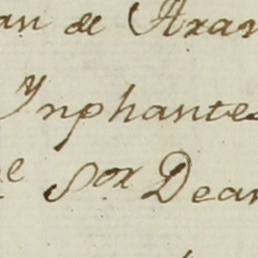 an de Aran
Ynphante
e Sor Dean